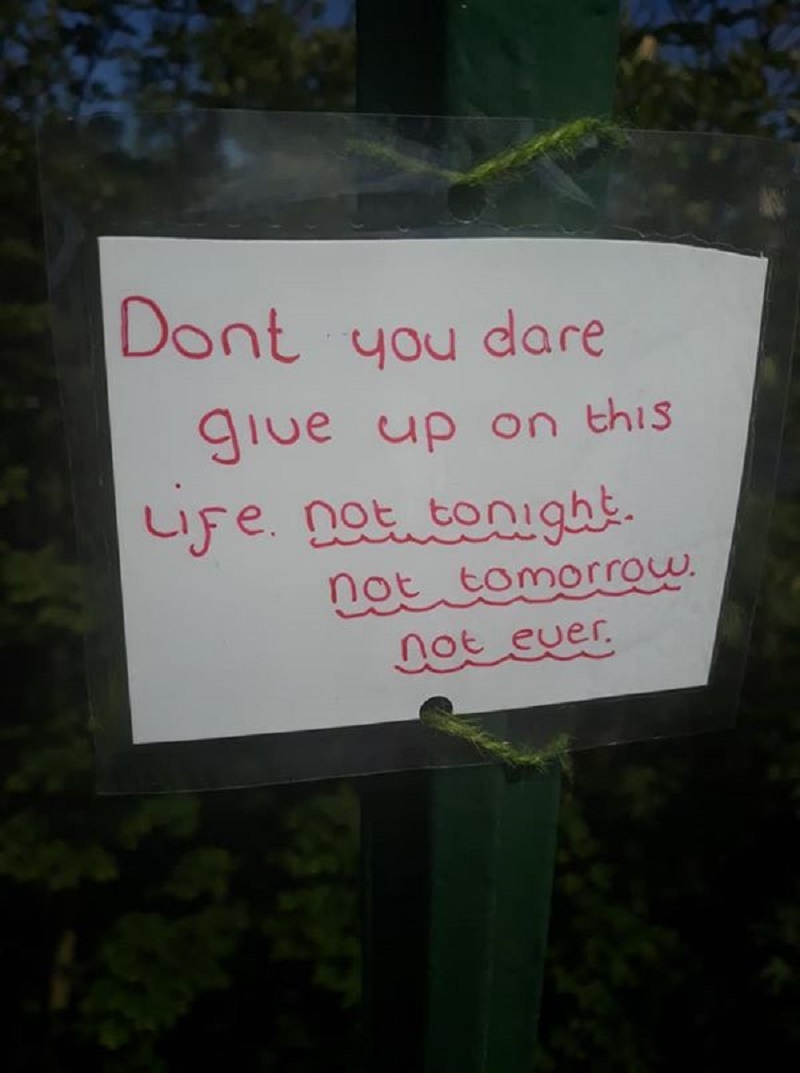 Dont you dare
give up on this
Life. not tonight.
not tomorrow.
not ever.